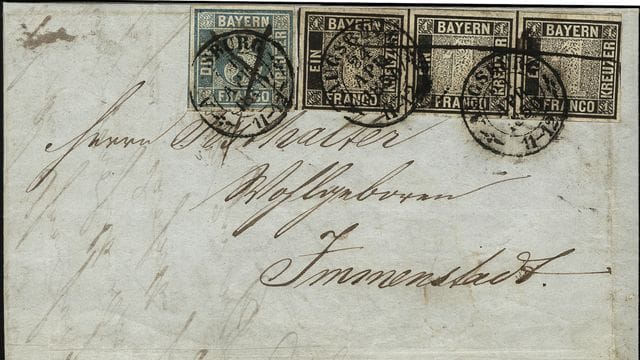 BAYERN BAYERN BAYERN BAYERN
EIN KREUZER KREUZER
FRANCO FRANCO FRANCO FRANCO
AUGSBURG AUGSBURG
Herrn
Wohlgeboren
Immenstadt.